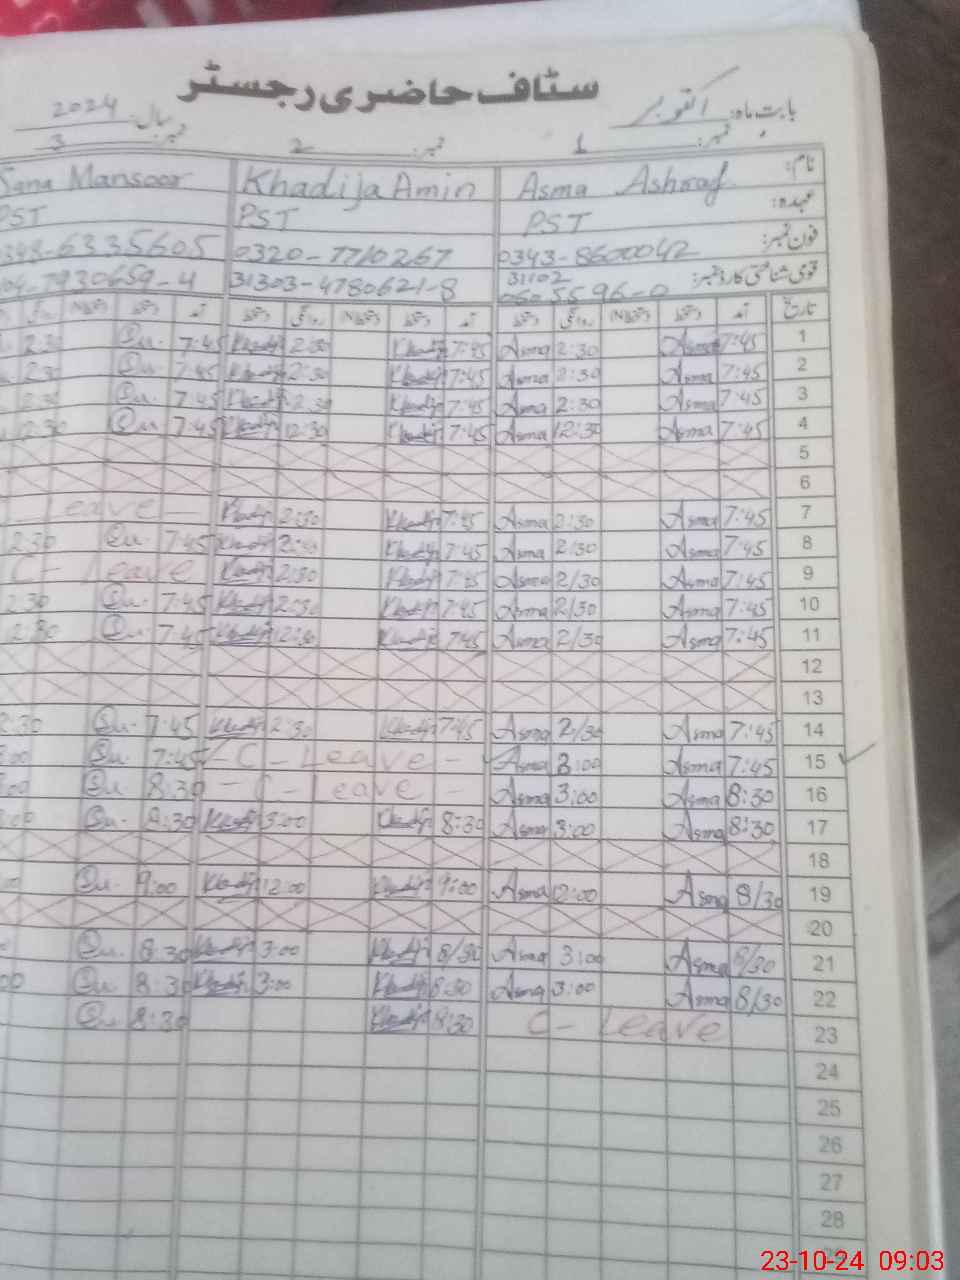 سٹاف حاضری رجسٹر
بابت ماہ: اکتوبر سال: 2024
نمبر: 1 نمبر: 2 نمبر: 3
نام: Asma Ashraf Khadija Amin Sana Mansoor
عہدہ: PST PST PST
فون نمبر: 0343-8600042 0320-7710267 0348-6335605
قومی شناختی کارڈ نمبر: 31102 31303-4780621-8 7930659-4
تاریخ آمد دستخط دستخط(N) روانگی دستخط آمد دستخط دستخط(N) روانگی دستخط آمد دستخط دستخط(N) روانگی
1 7:45 Asma 2:30 Asma 7:45 Khadija 2:30 Khadija 7:45 Su. 2:30
2 7:45 Asma 2:30 Asma 7:45 Khadija 2:30 Khadija 7:45 Su. 2:30
3 7:45 Asma 2:30 Asma 7:45 Khadija 2:30 Khadija 7:45 Su. 2:30
4 7:45 Asma 12:30 Asma 7:45 Khadija 12:30 Khadija 7:45 Su. 12:30
5
6
7 7:45 Asma 2:30 Asma 7:45 Khadija 2:30 Khadija Leave
8 7:45 Asma 2/30 Asma 7:45 Khadija 2:30 Khadija 7:45 Su. 2:30
9 7:45 Asma 2/30 Asma 7:45 Khadija 2:30 Khadija C- Leave
10 7:45 Asma 2/30 Asma 7:45 Khadija 2:30 Khadija 7:45 Su. 2:30
11 7:45 Asma 2/30 Asma 7:45 Khadija 12:30 Khadija 7:45 Su. 2:30
12
13
14 7:45 Asma 2/30 Asma 7:45 Khadija 2:30 Khadija 7:45 Su. 2:30
15 7:45 Asma 3:00 Asma - C - Leave - 7:45 Su. :00
16 8:30 Asma 3:00 Asma - C - Leave - 8:30 Su. :00
17 8:30 Asma 3:00 Asma 8:30 Khadija 3:00 Khadija 8:30 Su. :00
18
19 8/30 Asma 12:00 Asma 9:00 Khadija 12:00 Khadija 9:00 Su. 00
20
21 8/30 Asma 3:00 Asma 8/30 Khadija 3:00 Khadija 8:30 Su.
22 8/30 Asma 3:00 Asma 8:30 Khadija 3:00 Khadija 8:30 Su. 00
23 C- Leave 8:30 Khadija 8:30 Su.
24
25
26
27
28
29
23-10-24 09:03